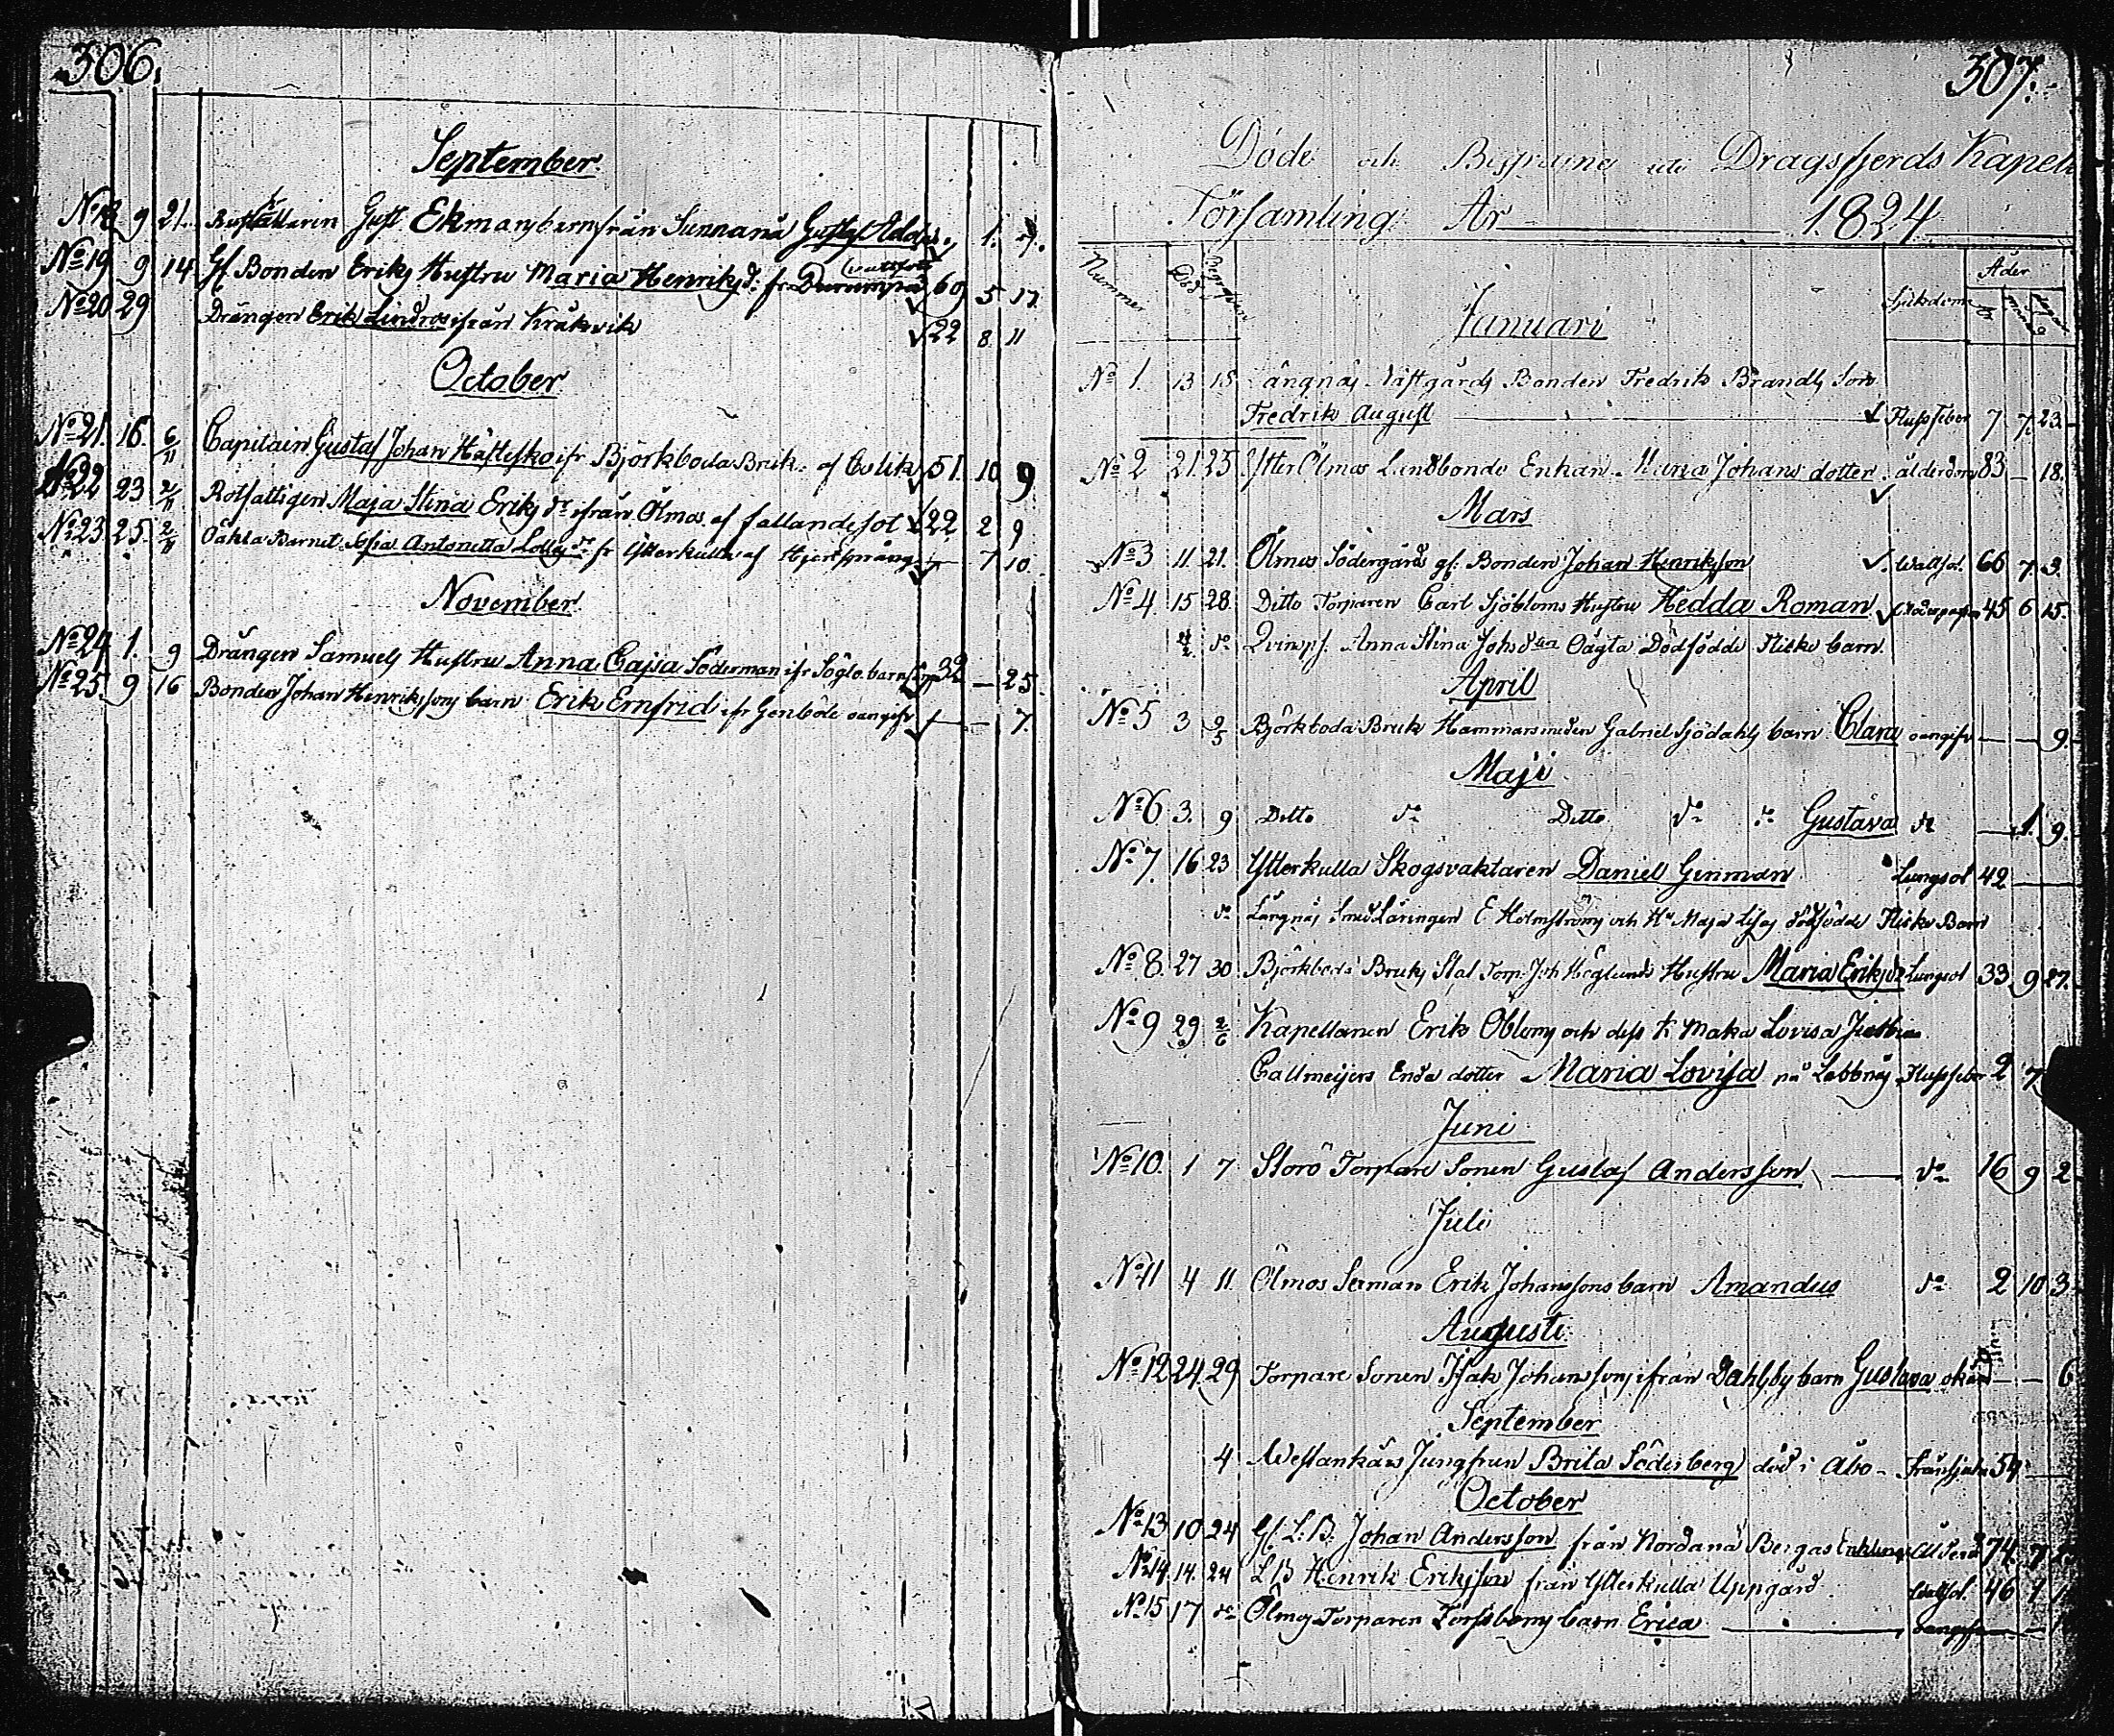 306.
September.
No 18 9 21. Gust Ekmans barn från Sunnanå Gustaf Adolf 1.
No 19 9 14 Gf. Bonden Eriks Hustru Maria Henriksdr. fr. vattsot 60 5 17.
No 20 29 Drängen Erik Lindros ifrån Kråkvik 22 8 11
October
No 21. 16. 6/11 Capitain Gustaf Johan Hästesko ifr Björkboda Bruk. af Colik 51. 10 9
No 22 23 2/11 Rotfattigen Maja Stina Eriks dr ifrån Ölmos. af fallandesot 22 2 9
No 23 25. 2/11 Oäkta Barnet Antonetta fr Ytterkulla af 7 10
November
No 24 1. 9 Drängen Samuels Hustru Anna Cajsa Söderman ifr Söglo. barns 32 — 25
No 25. 9 16 Bonden Johan Henrikssons barn Erik Ernfrid ifr Genböle oangifv — — 7.
307.
Döde och Begrafne uti Dragsfjerds Kapell
Församling År 1824
Nummer Död Begrafven Sjukdom Ålder
Januari
No 1. 13 15 Långnäs Västgårds Bonden Fredrik Brands Son
Fredrik August Flussfeber 7 7. 23.
No 2 21. 25. Ytter Ölmos Landbonde Enkan Maria Johans dotter ålderdom 83 — 18.
Mars
No 3 11. 21. Ölmos Södergårds gf. Bonden Johan Henriksson Wattsot. 66 7. 3.
No 4. 15 28. Ditto Torparen Carl Sjöbloms Hustru Hedda Roman 45 6 15.
do Qvinsp. Anna Stina Johsdtrs Oägta Dödfödde Flicko barn.
April
No 5 3 2/5 Björkboda Bruk Hammarsmeden Gabriel Sjödahls barn Clara oangifv — — 9.
Maji
No 6 3. 9 Ditto do Ditto do do Gustava do — 1. 9.
No 7. 16 23 Ytterkulla Skogsvaktaren Daniel Ginman Lungsot 42 —
do Långnäs Smed Läringen E Holmströms och Hu Maja Lisas dödfödde Flicko Barn
No 8. 27 30 Björkboda Bruks Stat Torp. Joh Höglunds Hustru Maria Eriksdr Lungsot 33 9 27.
No 9 29 2/6 Kapellanen Erik Öbloms och dess K. Maka Lovisa
Callmeijers Enda dotter Maria Lovisa på Labbnäs Flussfeber 2 7
Juni
No 10. 1 7 Storö Torpare Sonen Gustaf Andersson — do 16 9 2
Juli
No 11 4 11. Ölmos Serman Erik Johanssons barn Amandus do 2 10 3
Augusti
No 12 24 29 Torpare Sonen Isak Johanssons ifrån Dahlsby barn Gustava okänd — — 6
September
4 Westankärs Jungfrun Brita Söderberg död i Åbo — 54
October
No 13 10 24 Gf. L: B. Johan Andersson från Nordanå Bergas Enkling Ålderd 74. 7
No 14. 14. 24 L B Henrik Eriksson från Ytterkulla Uppgård Wattsot. 46 1
No 15 17 do Ölmos Torparen barn Erica — oangifven —